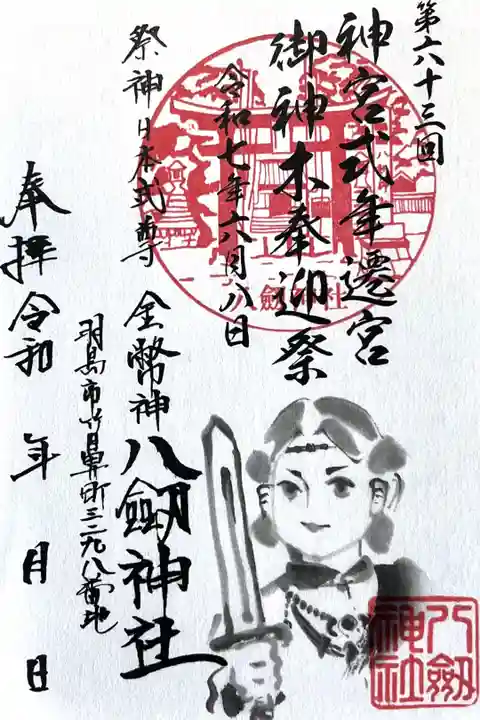 第六十三回
神宮式年遷宮
御神木奉迎祭
令和七年六月八日
八劔神社
祭神日本武尊
金幣神
八劔神社
羽島市竹鼻町三二九八番地
奉拝
令和 年 月 日
八劔
神社